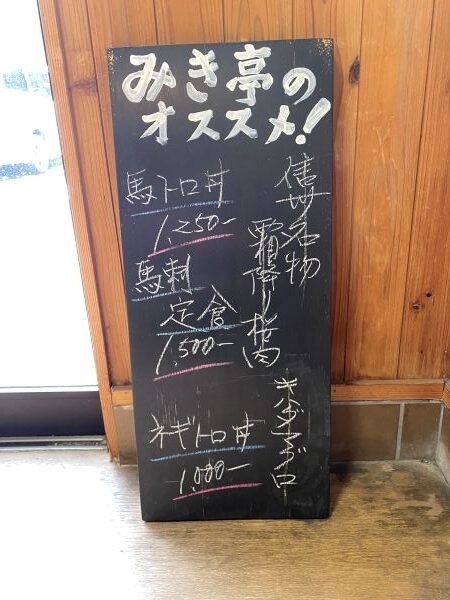 みき亭の
オススメ!
信州名物
霜降り桜肉
馬トロ丼
1,250-
馬刺
定食
1,500-
キハダマグロ
ネギトロ丼
1,000-